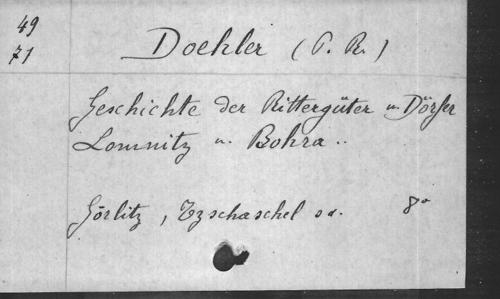 49
71
Doehler (P. R.)
Geschichte der Rittergüter u. Dörfer
Lomnitz u. Bohra..
Görlitz, Tzschaschel s d. 8°